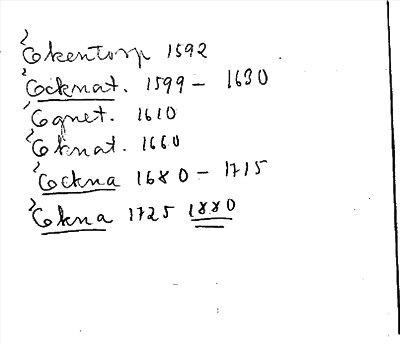 Cokentorp 1592
Cocknat. 1599 - 1630
Coqnet. 1610
Coknat. 1660
Cockna 1680 - 1715
Cokna 1725 1880